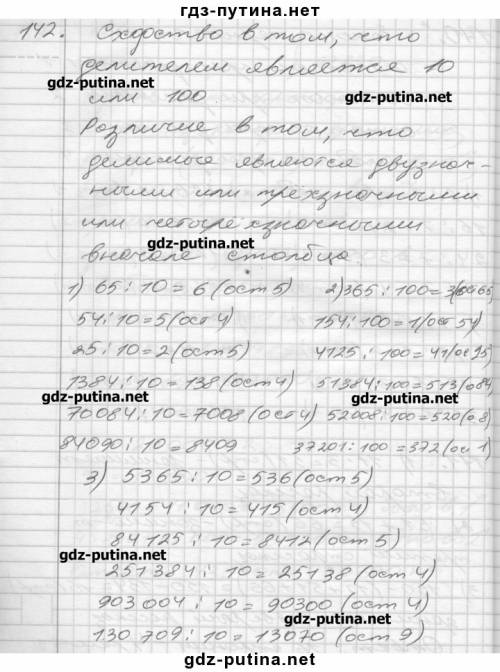 гдз-путина.нет
142. Сходство в том, что
делителем является 10
gdz-putina.net
или 100
gdz-putina.net
Различие в том, что
делимые являются двузнач-
ными или трехзначными
или четырехзначными
gdz-putina.net
вначале столбца.
1) 65 : 10 = 6 (ост 5) 2) 365 : 100 = 3 (ост 65
54 : 10 = 5 (ост 4) 154 : 100 = 1 (ост 54)
25 : 10 = 2 (ост 5) 4125 : 100 = 41 (ос 25)
1384 : 10 = 138 (ост 4) 51384 : 100 = 513 (о 84)
gdz-putina.net gdz-putina.net
70084 : 10 = 7008 (ост 4) 52008 : 100 = 520 (о 8)
84090 : 10 = 8409 37201 : 100 = 372 (ос 1)
3) 5365 : 10 = 536 (ост 5)
4154 : 10 = 415 (ост 4)
84125 : 10 = 8412 (ост 5)
gdz-putina.net
251384 : 10 = 25138 (ост 4)
903004 : 10 = 90300 (ост 4)
gdz-putina.net
130709 : 10 = 13070 (ост 9)
gdz-putina.net